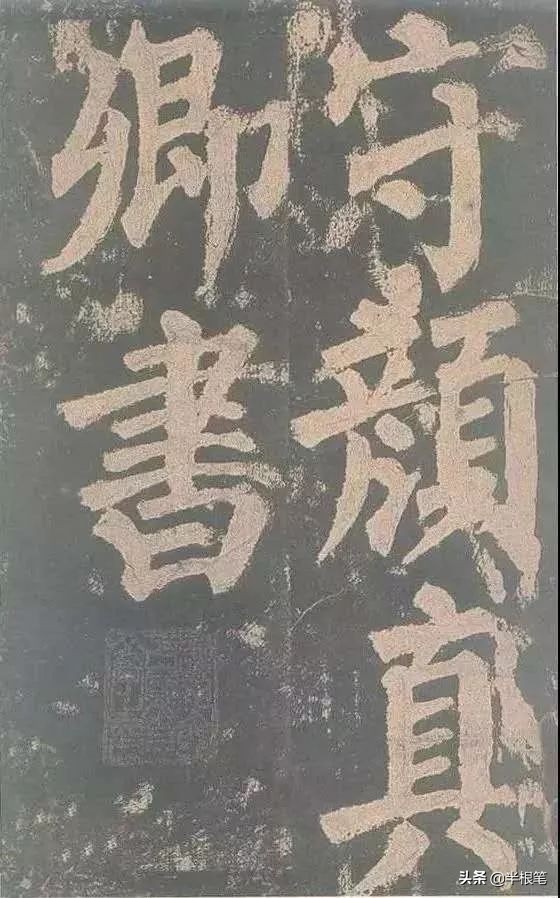 守顔真
卿書
头条 @半根笔